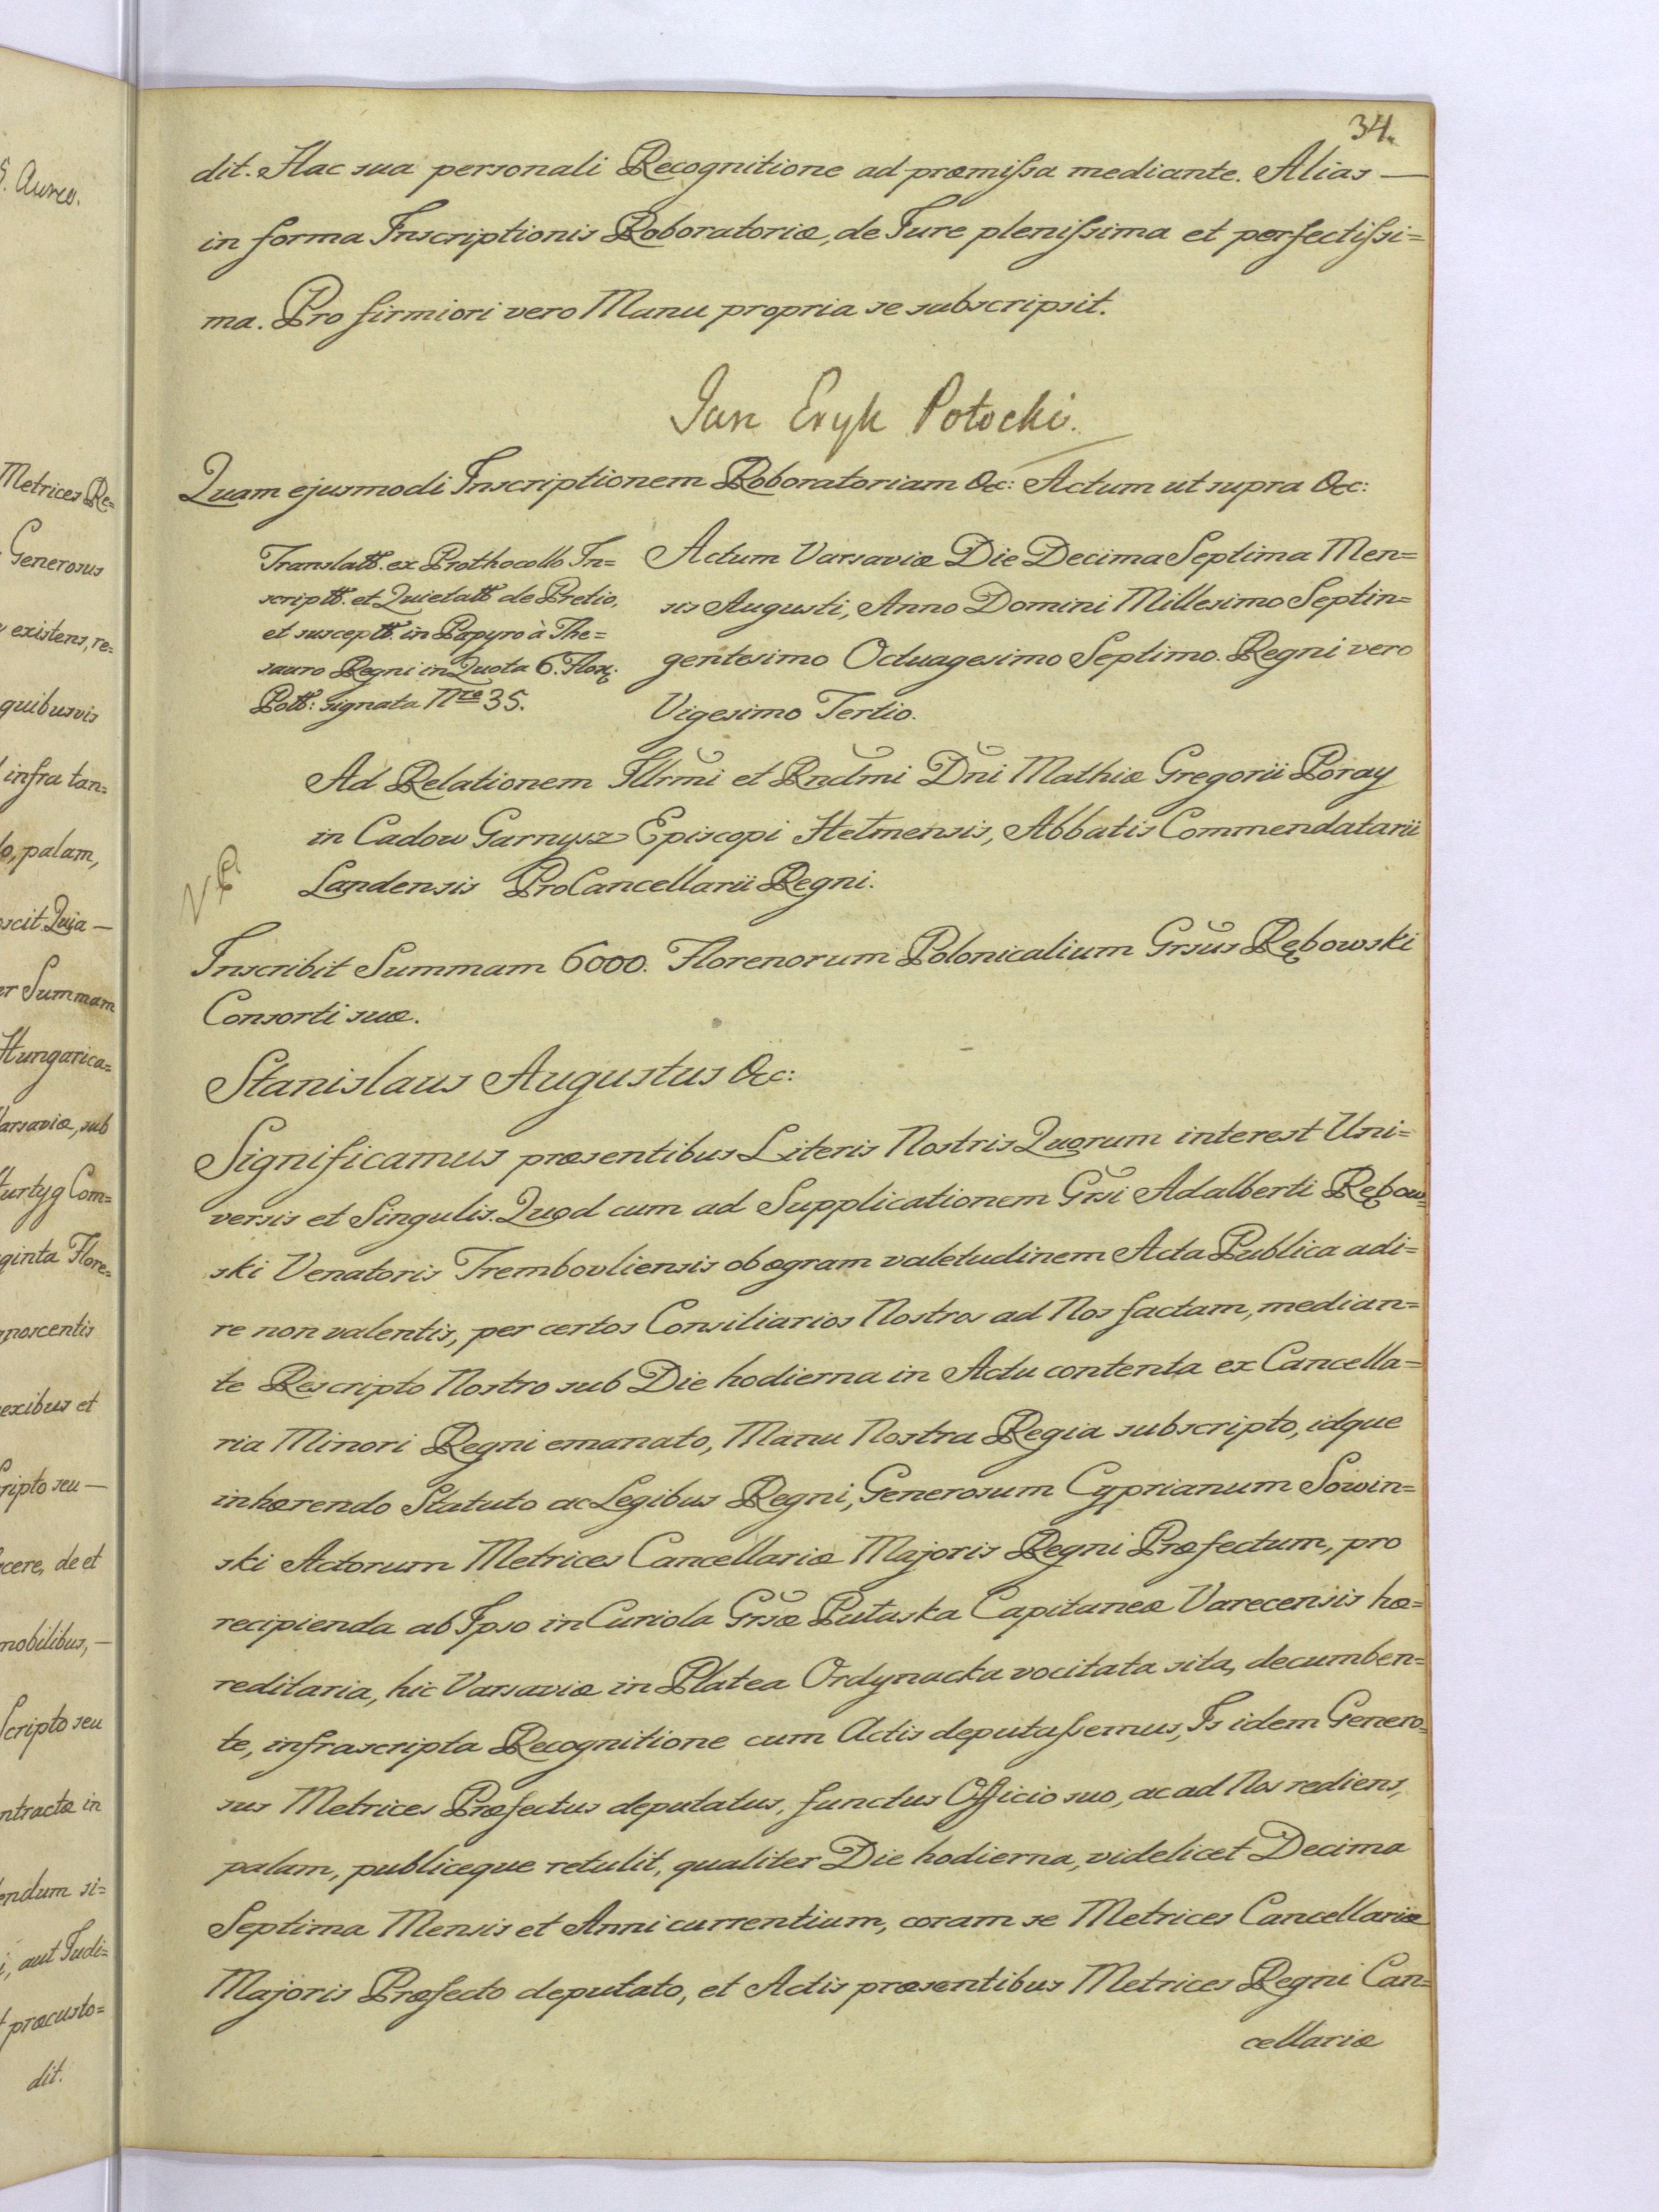 34.
dit. Hac sua personali Recognitione ad præmiſsa mediante. Alias —
in forma Inscriptionis Roboratoriæ, de Jure pleniſsima et perfectiſsi=
ma. Pro firmiori vero Manu propria se subscripsit.
Jan Eryk Potocki.
Quam ejusmodi Inscriptionem Roboratoriam &c: Actum ut supra &c:
Translatt. ex Prothocollo In=
scriptt. et Quietatt. de Pretio,
et susceptt. in Papyro à The=
sauro Regni in Quota 6. Flor:
Poltt: signata Nro 35.
Actum Varsaviæ Die Decima Septima Men=
sis Augusti, Anno Domini Millesimo Septin=
gentesimo Octuagesimo Septimo. Regni vero
Vigesimo Tertio.
Ad Relationem Illrmi et Rndmi Dni Mathiæ Gregorii Poray
in Cadow Garnysz Episcopi Helmensis, Abbatis Commendatarii
Landensis ProCancellarii Regni.
Inscribit Summam 6000. Florenorum Polonicalium Grsus Rębowski
Consorti suæ.
Stanislaus Augustus &c:
Significamus præsentibus Literis Nostris Quorum interest Uni=
versis et Singulis. Quod cum ad Supplicationem Grsi Adalberti Rębow=
ski Venatoris Trembovliensis ob ægram valetudinem Acta Publica adi=
re non valentis, per certos Consiliarios Nostros ad Nos factam, median=
te Rescripto Nostro sub Die hodierna in Actu contenta ex Cancella=
ria Minori Regni emanato, Manu Nostra Regia subscripto, idque
inhærendo Statuto ac Legibus Regni, Generosum Cyprianum Sowin=
ski Actorum Metrices Cancellariæ Majoris Regni Præfectum, pro
recipienda ab Ipso in Curiola Grsæ Pułaska Capitaneæ Varecensis hæ=
reditaria, hic Varsaviæ in Platea Ordynacka vocitata sita, decumben=
te, infrascripta Recognitione cum Actis deputaſsemus, Is idem Genero=
sus Metrices Præfectus deputatus, functus Officio suo, ac ad Nos rediens,
palam, publiceque retulit, qualiter Die hodierna, videlicet Decima
Septima Mensis et Anni currentium, coram se Metrices Cancellariæ
Majoris Præfecto deputato, et Actis præsentibus Metrices Regni Can=
cellariæ